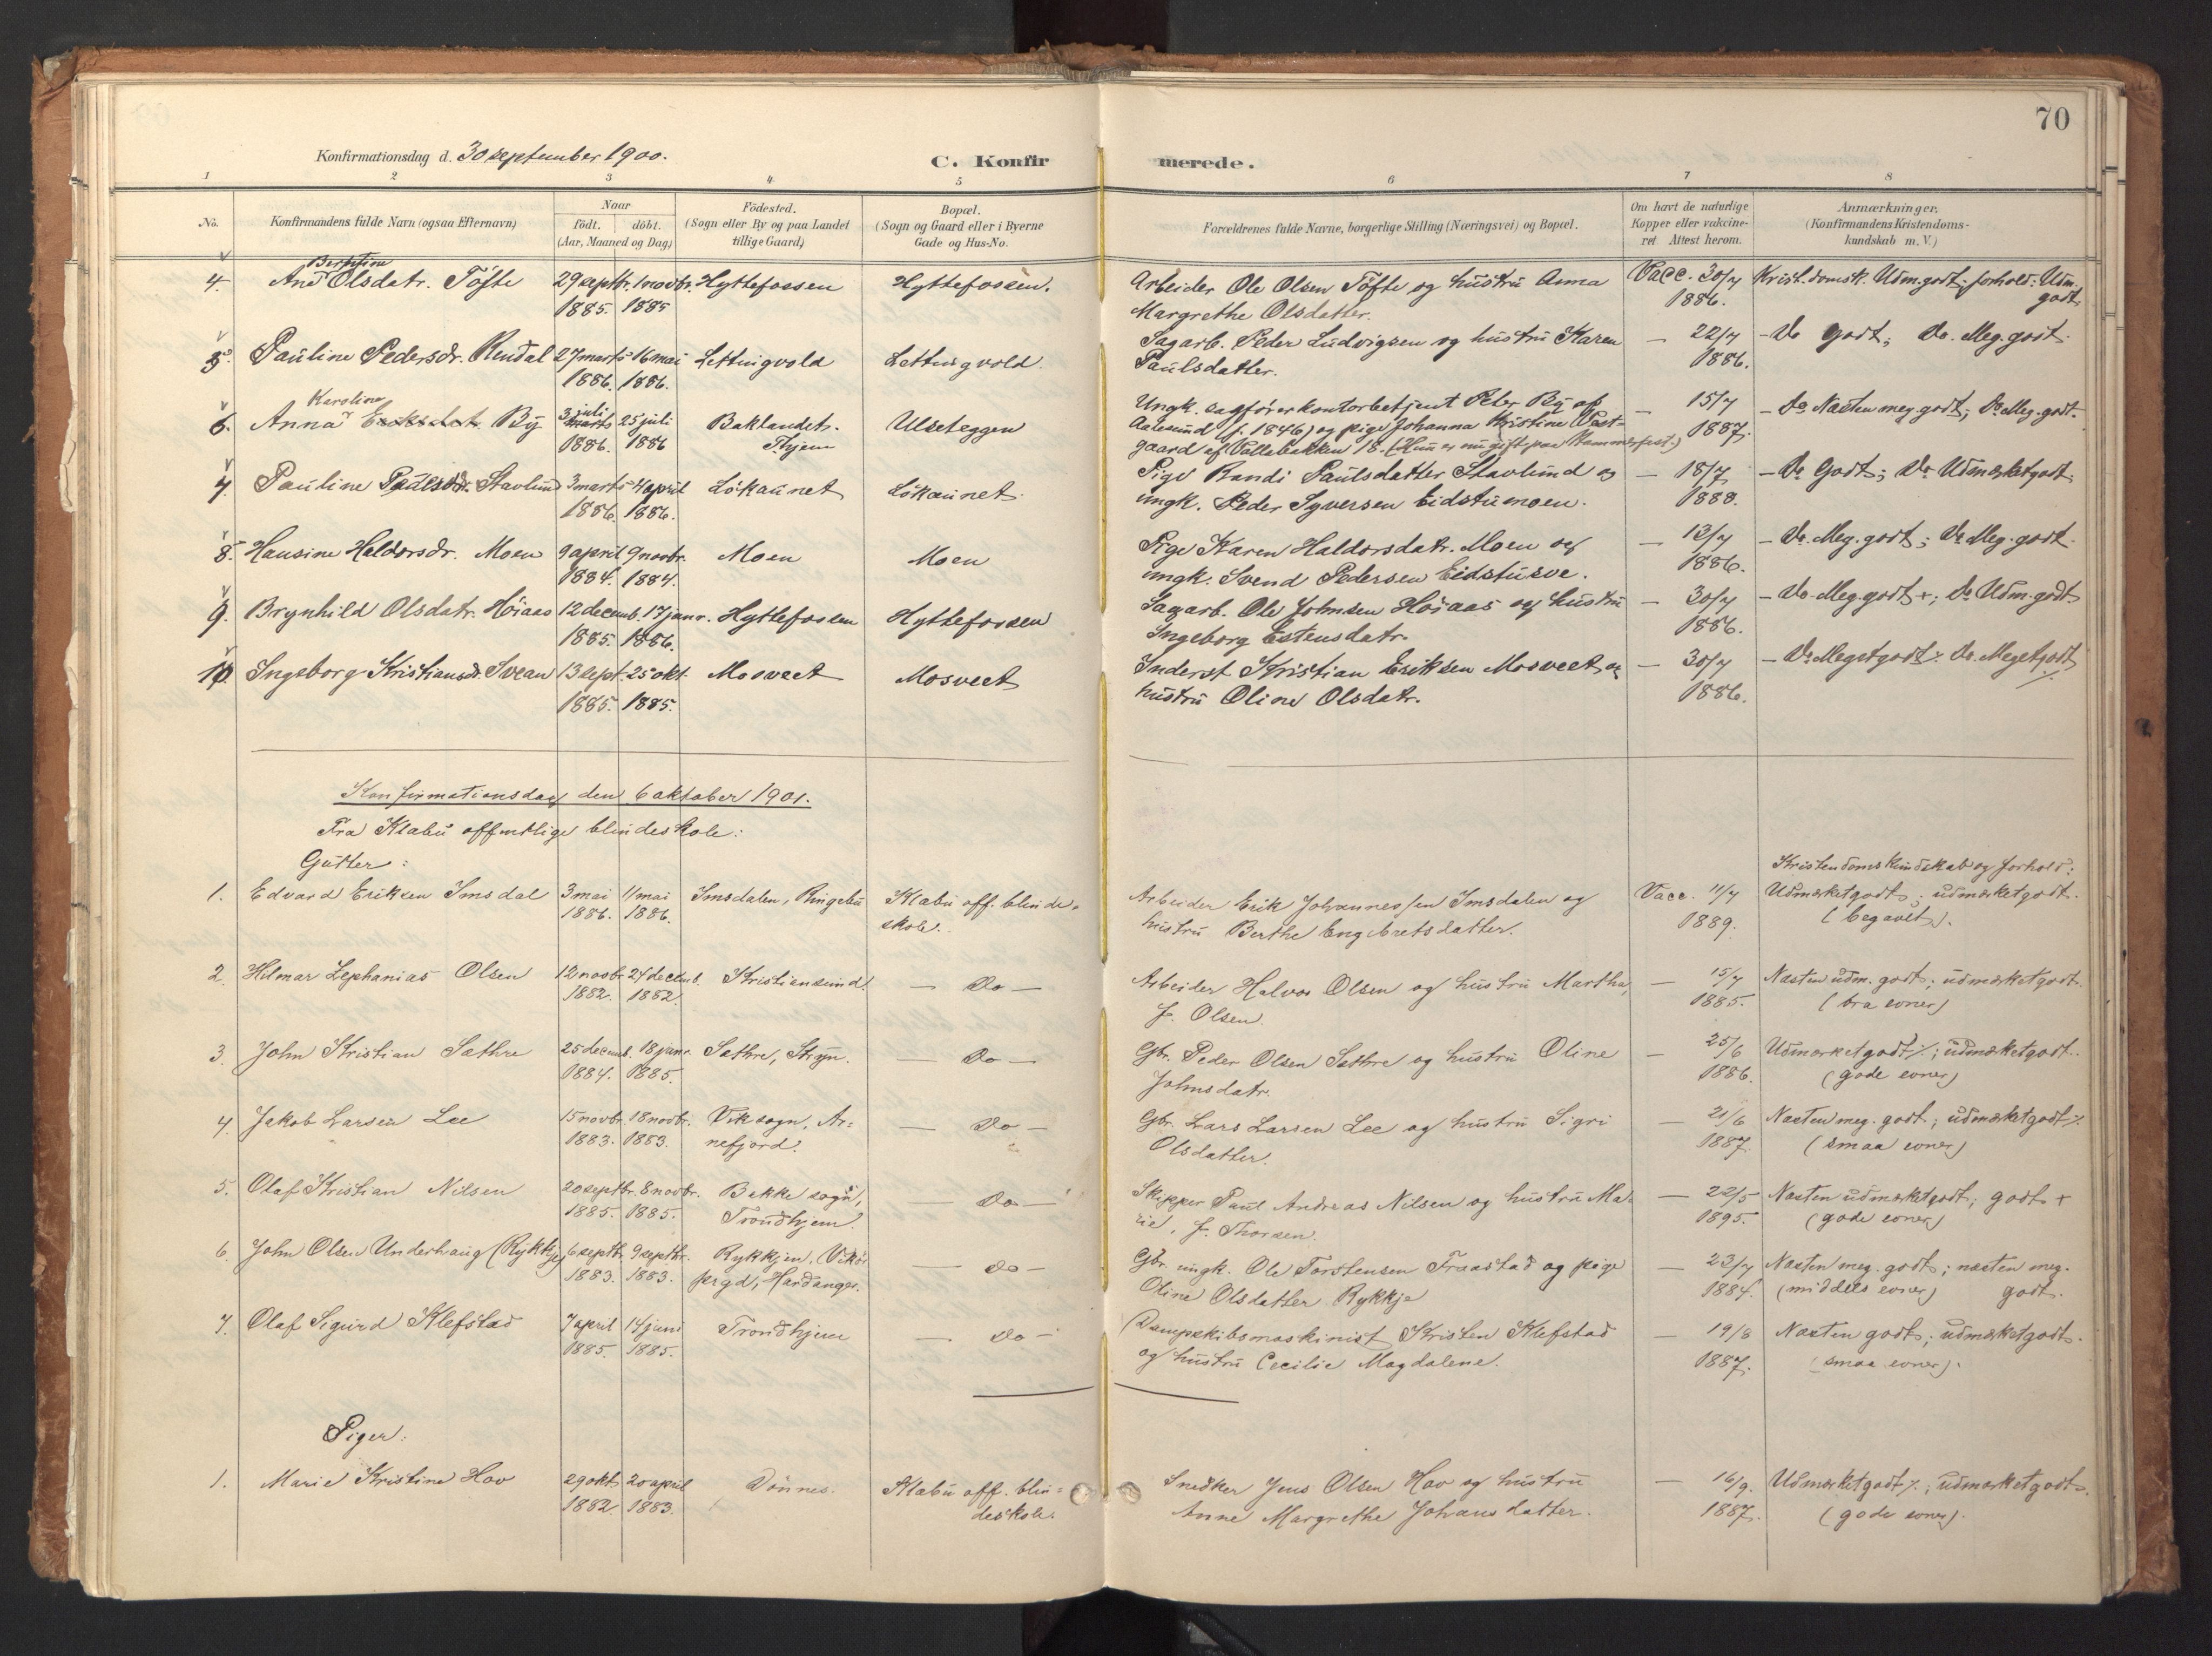 70
Konfirmationsdag d. 30 september 1900.
C. Konfir merede.
1 2 3 4 5 6 7 8
No.
Konfirmandens fulde Navn (ogsaa Efternavn)
Naar
født. døbt.
(Aar, Maaned og Dag)
Fødested.
(Sogn eller By og paa Landet
tillige Gaard)
Bopæl.
(Sogn og Gaard eller i Byerne
Gade og Hus-No.
Forældrenes fulde Navne, borgerlige Stilling (Næringsvei) og Bopæl.
Om havt de naturlige
Kopper eller vakcine-
ret Attest herom.
Anmærkninger,
(Konfirmandens Kristendoms-
kundskab m. V.)
4. Ane Olsdatr. Töfte 29 septbr. 1 novbr. Hyttefossen Hyttefossen. Arbeider Ole Olsen Töfte og hustru Anna Vacc. 30/7 Krist.domsk. Udm.godt; forhold: Udm.
1885. 1885 Margrethe Olsdatter. 1886. godt.
5. Pauline Pedersdr. Rendal 27 marts 16 mai Lettingvold Lettingvold. Sagarb. Peder Ludvigsen og hustru Karen — 22/7 — Do godt; Do. Meg. godt.
1886. 1886. Paulsdatter. 1886.
Karoline
6. Anna Eriksdat. By 3 juli marts 25 juli Baklandet. Ulsteggen Ungk. sagförerkontorbetjent Peter By af — 15/7 — Do. Næsten meg. godt; Do. Meg. godt.
1886. 1886 Thjem Aalesund (f. 1846) og pige Johanna Kristine Vest- 1887.
gaard af Vollabakken 18. (Hun er nu gift paa Hammerfest.)
7. Pauline Paulsdr. Stavlund 3 marts 4 april Lökaunet Lökaunet. Pige Randi Paulsdatter Stavlund og — 18/7 — Do Godt; Do Udmærketgodt.
1886. 1886. ungk. Peder Syversen Eidstumoen. 1888.
8. Hansine Haldorsdr. Moen 9 april 9 novbr. Moen Moen Pige Karen Haldorsdatr. Moen og — 13/7 — Do. Meg. godt; Do Meg. godt.
1884. 1884. ungk. Svend Pedersen Eidstusve. 1886.
9. Brynhild Olsdatr. Höiaas 12 decemb. 17 januar. Hyttefossen Hyttefossen Sagarb. Ole Johnsen Höiaas og hustru — 30/7 — Do. Meg godt +; Do Udm. godt.
1885. 1886. Ingeborg Estensdatr. 1886.
10. Ingeborg Kristiansdr. Svean 13 sept. 25 okt. Mosveet Mosveet Inderst Kristian Eriksen Mosveet og — 30/7 — Do Megetgodt ÷. Do. Megetgodt
1885. 1885. hustru Oline Olsdatr. 1886.
Konfirmationsdag den 6 oktober 1901.
Fra Klæbu offentlige blindeskole:
Gutter: Kristendomskundskab og forhold:
1. Edvard Eriksen Imsdal 3 mai 11 mai Imsdalen, Ringebu Klæbu off. blinde- Arbeider Erik Johannessen Imsdalen og Vacc. 11/7 Udmærketgodt; udmærketgodt.
1886. 1886. skole. hustru Berthe Engebretsdatter. 1889. (begavet).
2. Hilmar Zephanias Olsen 12 novbr. 24 decemb. Kristiansund. — Do — Arbeider Halvor Olsen og hustru Martha, — 15/7 Næsten udm. godt; udmærketgodt.
1882. 1882. f. Olsen. 1885. (bra evner)
3. John Kristian Sæthre 25 decemb. 18 januar. Sæthre, Stryn. — Do — Gbr. Peder Olsen Sæthre og hustru Oline — 25/6 Udmærketgodt ÷; udmærketgodt.
1884. 1885. Johnsdatr. 1886. (gode evner)
4. Jakob Larsen Lee 15 novbr. 18 novbr. Viksogn, Ar- — Do — Gbr. Lars Larsen Lee og hustru Sigri — 21/6 Næsten meg. godt; udmærketgodt ÷.
1883. 1883. nefjord. Olsdatter. 1887. (smaa evner)
5. Olaf Kristian Nilsen 20 septbr. 8 novbr. Bakke sogn, — Do — Skipper Paul Andreas Nilsen og hustru Ma- — 22/5 Næsten udmærketgodt; godt +
1885. 1885. Trondhjem. rie, f. Thorsen. 1895. (gode evner)
6. John Olsen Underhaug (Rykkje) 6 septbr. 9 septbr. Rykkjen, Vikör — Do — Gbr. ungk. Ole Torstensen Fraastad og pige — 23/7 Næsten meg. godt; næsten meg.
1883. 1883. prgd, Hardanger. Oline Olsdatter Rykkje 1884. (middels evner) godt.
7. Olaf Sigurd Klefstad 7 april 14 juni Trondhjem — Do — Dampskibsmaskinist Kristen Klefstad — 19/8 Næsten godt; udmærketgodt.
1885. 1885. og hustru Cecilie Magdalene. 1887. (smaa evner).
Piger:
1. Marie Kristine Hov 29 okt. 20 april Dönnes. Klæbu off. blin- Snedker Jens Olsen Hov og hustru — 16/9. Udmærketgodt ÷; udmærketgodt.
1882. 1883. deskole. Anne Margrethe Johansdatter. 1887. (gode evner).